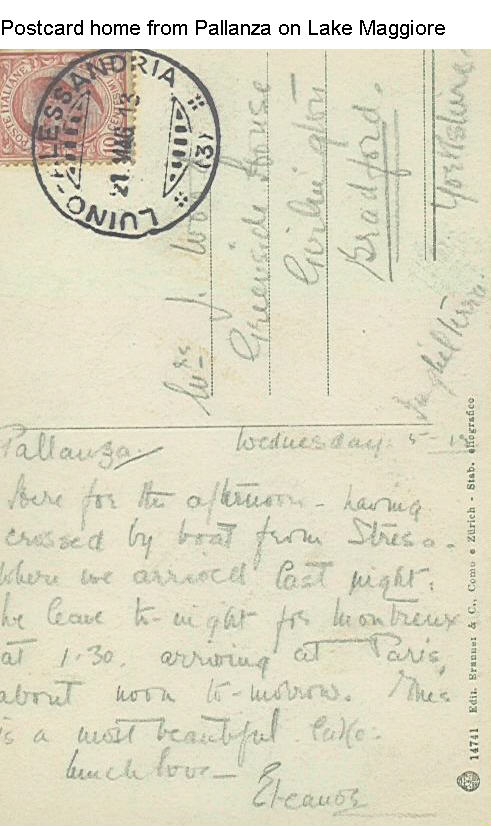 Postcard home from Pallanza on Lake Maggiore
POSTE ITALIANE
10
LUINO-ALESSANDRIA
(3)
21. MAG 13
Mrs J. Wood
Greenside House
Girlington
Bradford.
Yorkshire
Inghilterra.
Pallanza Wednesday. 5-15
Here for the afternoon - having
crossed by boat from Stresa.
Where we arrived last night.
We leave to-night for Montreux
at 1.30. arriving at Paris
about noon to-morrow. This
is a most beautiful lake.
Much love -
Eleanor
14741 Edit. Brunner & C., Como e Zürich - Stab. eliografico